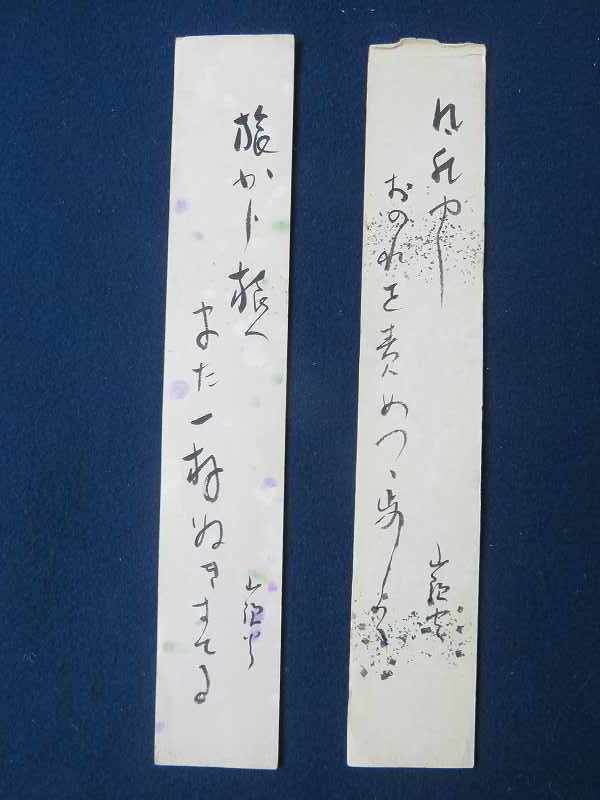 風の中
おのれを責めつゝ歩く
山頭火
旅から旅へ
また一枚ぬぎすてる
山頭火